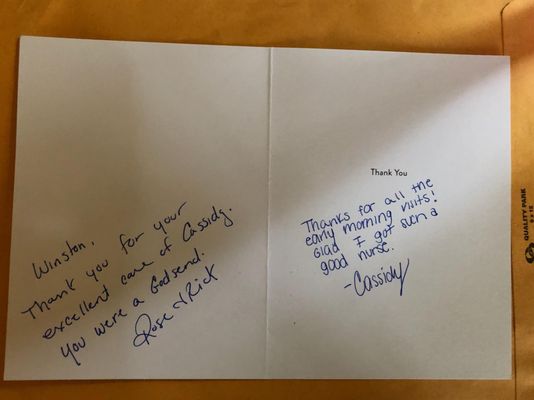 Winston,
Thank you for your
excellent care of Cassidy.
You were a Godsend.
Rose & Rick
Thank You
Thanks for all the
early morning visits!
Glad I got such a
good nurse.
-Cassidy
QUALITY PARK